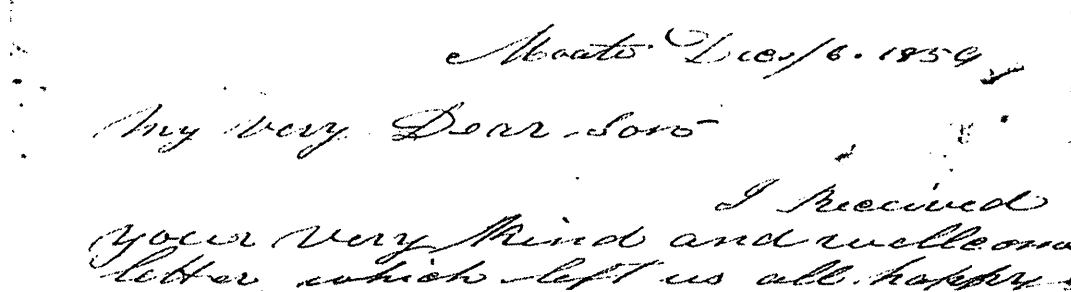 Moate Dec/6. 1859
My very Dear Son
I Received
your very Kind and wellcome
letter which left us all happy